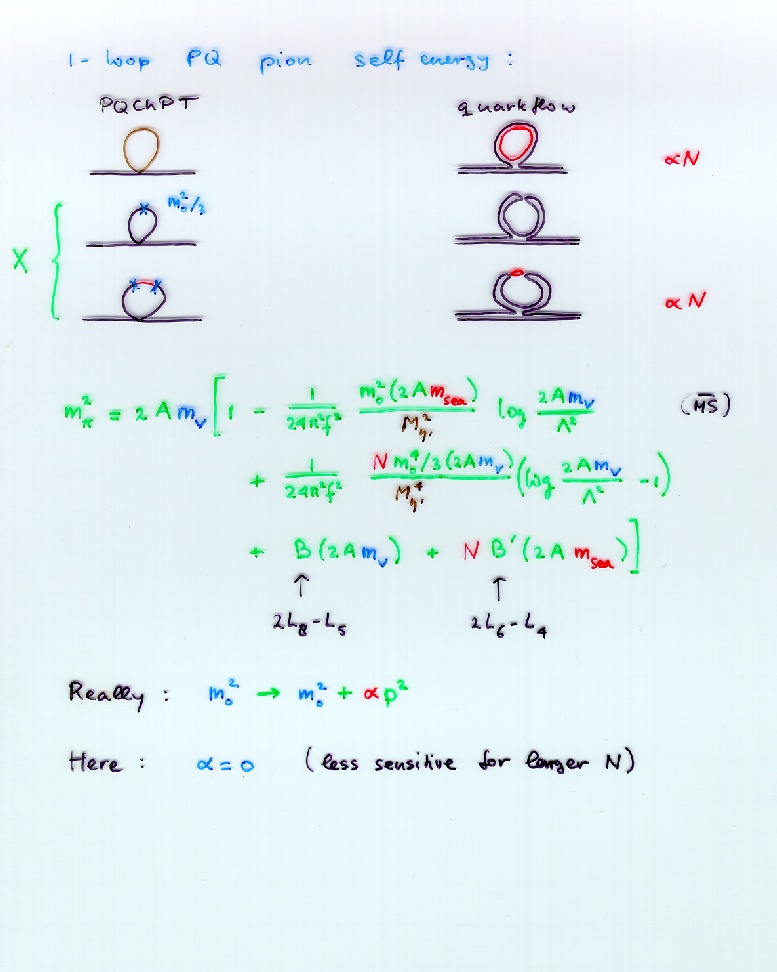 1-loop PQ pion self energy:
PQChPT quarkflow
∝N
m₀²/3
X
∝N
m_π² = 2 A m_v [ 1 - 1/(24π²f²) m₀²(2 A m_sea)/M_η'² log 2Am_v/Λ² (M̅S̅)
+ 1/(24π²f²) N m₀⁴/3 (2Am_v)/M_η'⁴ (log 2Am_v/Λ² - 1)
+ B(2Am_v) + N B'(2A m_sea) ]
↑ ↑
2L₈-L₅ 2L₆-L₄
Really: m₀² → m₀² + αp²
Here: α = 0 (less sensitive for larger N)